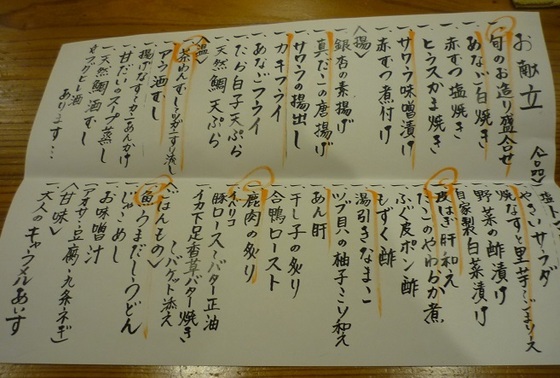 お献立
一、旬のお造り盛合せ
一、あなご白焼き
一、赤むつ塩焼き
一、ヒラスかま焼き
一、サワラ味噌漬け
一、赤むつ煮付け
〈揚〉
一、銀杏の素揚げ
一、真だこの唐揚げ
一、サワラの揚出し
一、カキフライ
一、あなごフライ
一、たら白子天ぷら
一、天然鯛天ぷら
〈温〉
一、茶わんむし
一、アラ酒むし
一、揚げなす
一、甘だいのスープ蒸し
一、天然鯛酒むし
あります…
〈一品〉
やさいサラダ
一、焼なすと里芋ごまソース
一、野菜の酢漬け
一、自家製白菜漬け
一、皮はぎ肝和え
一、たこのやわらか煮
一、ふぐ皮ポン酢
一、もずく酢
一、湯引きなまこ
一、ツブ貝の柚子みそ和え
一、あん肝
一、干し子の炙り
一、合鴨ロースト
一、鹿肉の炙り
一、イベリコ豚ロースバター正油
一、イカ下足香草バター焼き
〜バゲット添え
〈ごはんもの〉
一、魚うまだしうどん
一、じゃこめし
一、お味噌汁
(アオサ・豆腐・九条ネギ)
〈甘味〉
一、大人のキャラメルあいす